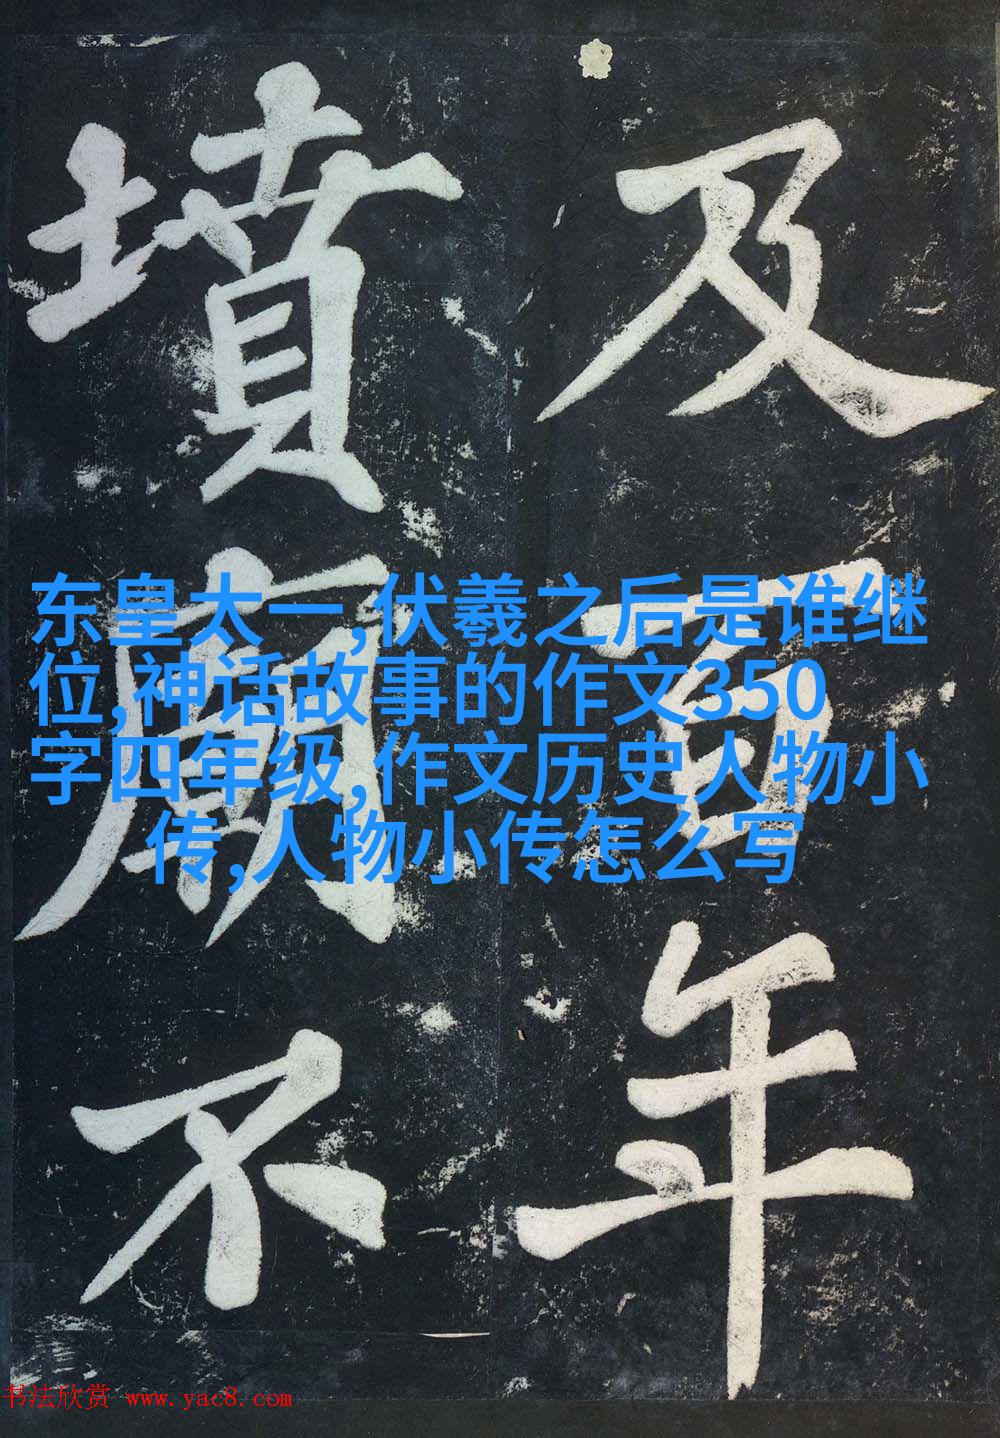 及百年
墳廟不
东皇太一,伏羲之后是谁继
位,神话故事的作文350
字四年级,作文历史人物小
传,人物小传怎么写
书法欣赏 www.yac8.com